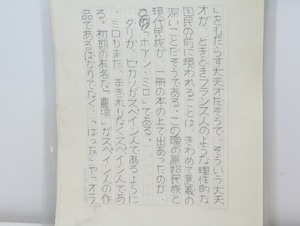 」をもたらす大天才だそうで、そういう大天
才が、ときどきフランス人のような理性的な
国民の前に現われることは、きわめて意義の
深いことだそうである。この種の原始民族と
現代民族が、一冊の本の上で出あったのが、
この「ホアン・ミロ」である。
ダリが、ピカソがスペイン人であるように
、ミロもまた、まぎれもなくスペイン人であ
る。初期の有名な「農場」がスペイン人の作
品であるばかりでなく、「はつか」や「オラ